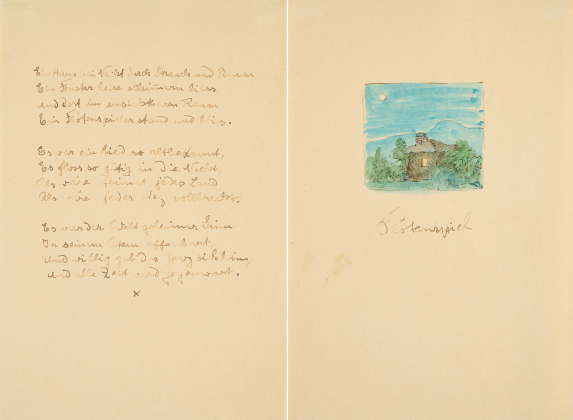 Ein Haus bei Nacht durch Strauch und Baum
Ein Fenster leise schimmern liess
und dort im unsichtbaren Raum
Ein Flötenspieler stand und blies.
Es war ein Lied so altbekannt,
Es floss so gütig in die Nacht,
Als wäre Heimat jedes Land
Als wäre jeder Weg vollbracht.
Es war der Welt geheimer Sinn
In seinem Atem offenbart
und willig gab das Herz sich hin
und alle Zeit ward Gegenwart.
x
Flötenspiel